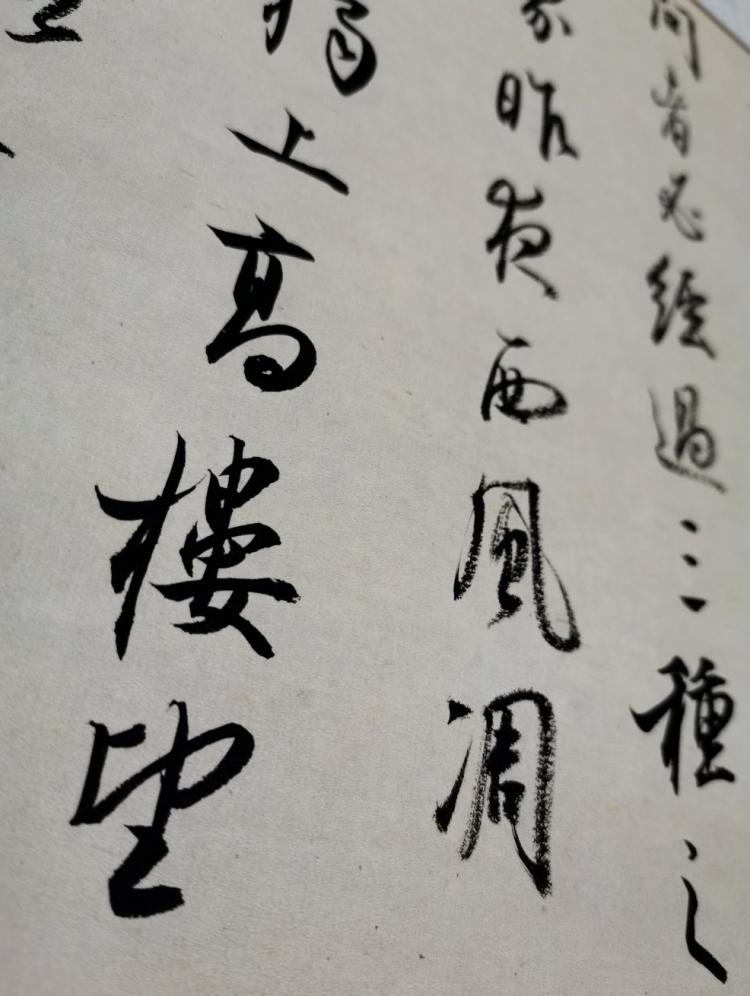 問者必經過三種之
界昨夜西風凋
獨上高樓望